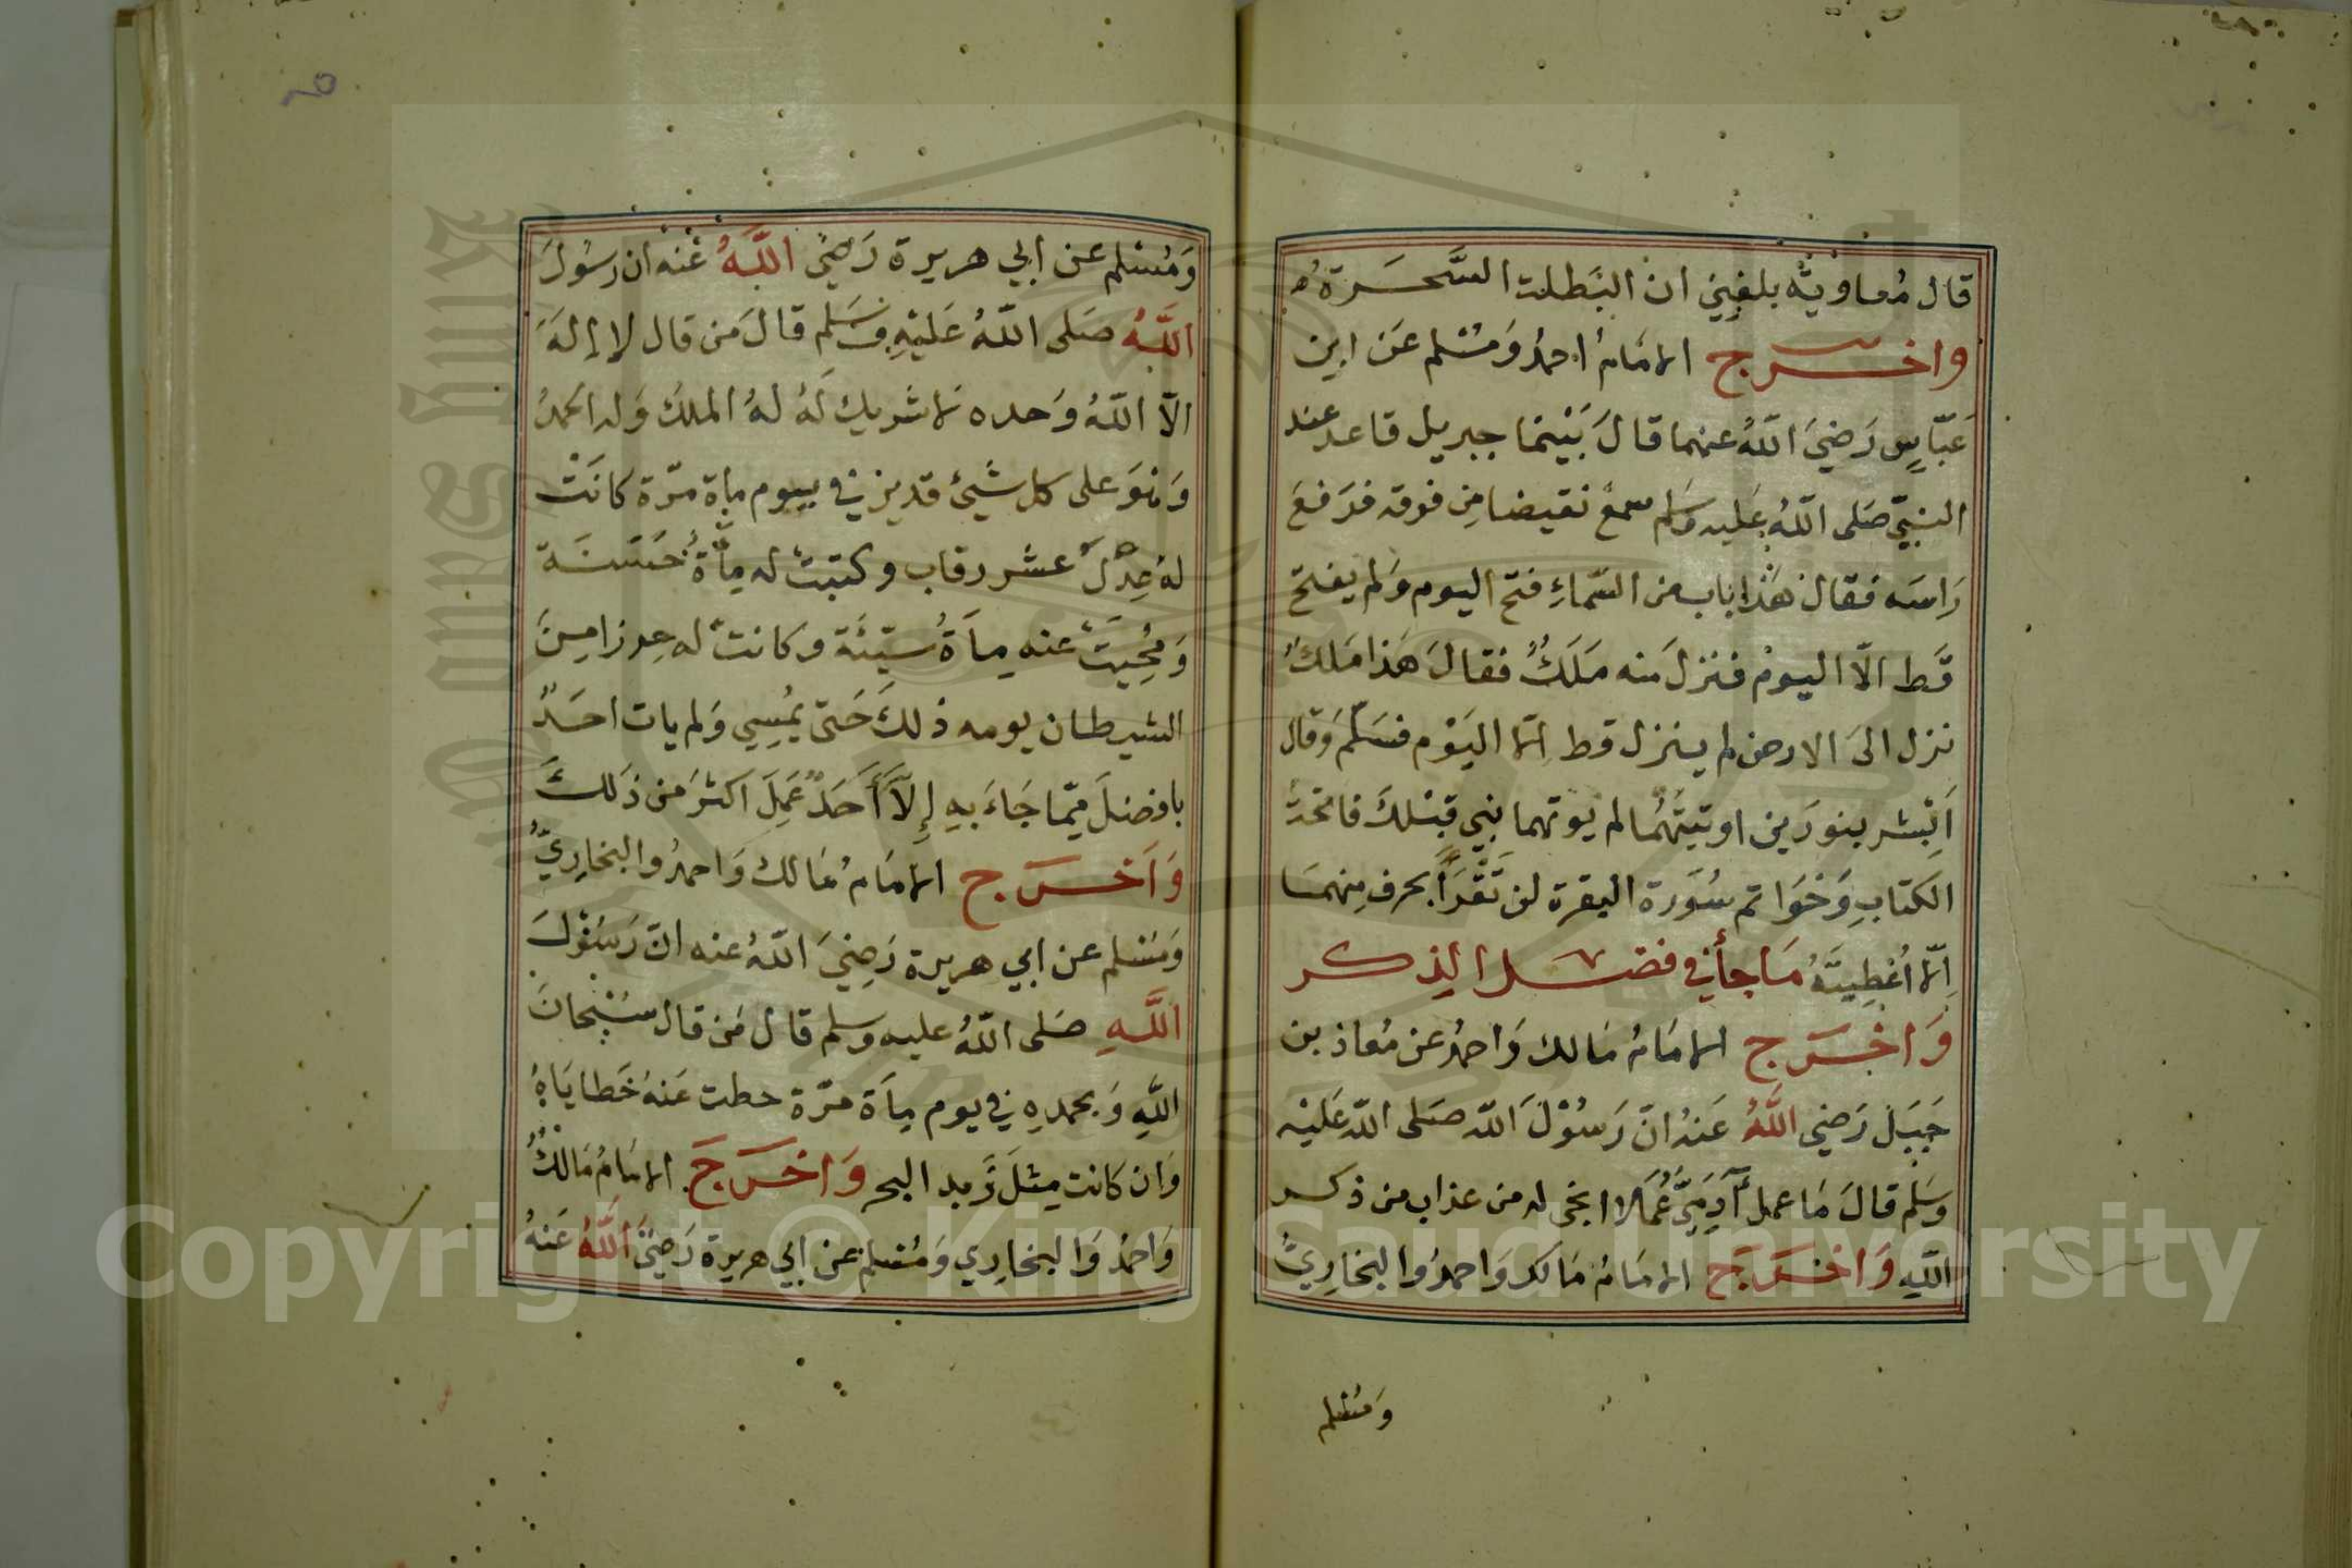 قال مُعاويةُ بلغني ان البَطلت السَّحَرَة
واخرج الامَامُ احمدُ وَمُسْلم عَن ابن
عَبّاسٍ رَضيَ اللّهُ عنهما قالَ بَيْنَما جبريل قاعد عند
النبيّ صَلى اللّهُ عَليه وَسَلم سمعَ نقيضا مِن فوقه فرَفعَ
رَاسَه فقال هَذا باب من السّماءِ فتح اليوم وَلم يفتح
قَط الاّ اليومَ فنزلَ منه مَلَكٌ فقالَ هَذا مَلكٌ
نزل الىَ الارض لم ينزل قط الا اليَوْم فسَلّمَ وَقال
اَبْشر بنورَين اوتيتَهُما لم يوتهما نبي قبْلكَ فاتحَةُ
الكتابِ وَخَوَاتم سُورَة البقرة لن تَقْرَأَ بحرف مِنهمَا
الا اُعْطِيتَهُ مَا جأ في فضل الذكر
وَاخْرَج الامَامُ مَالك وَاحمدُ عن مُعاذ بن
جَبَل رَضي اللَّهُ عَنهُ انّ رَسُوْلَ اللّه صَلى اللّه عَليْه
وسَلم قالَ مَا عمل آدَمِيٌّ عَمَلا انجى له من عذاب من ذكر
اللّهِ وَاخرَجَ الامَامُ مَالك وَاحمدُ والبخارِيُّ
وَمُسْلم
وَمُسْلم عن ابي هريرة رَضيَ اللَّهُ عَنهُ ان رسُولَ
اللَّهِ صَلى اللّهُ عَليْهِ وَسَلم قالَ مَن قال لا إلهَ
الاّ اللّهُ وَحده لا شريك لَهُ لهُ الملكُ وَله الحمدُ
وَهْوَ على كل شَيْءٍ قدير في يوم مِاة مرّة كانَتْ
لهُ عِدْلَ عشر رقاب وكتبت له مِأةُ حَسَنَة
وَمُحِيَتْ عنه مِاَةُ سَيّئَة وكانت له حِرزا مِنَ
الشيطان يومه ذلكَ حَتى يُمْسِي وَلم يات احَدٌ
بافضلَ مِمّا جَاءَ بِهِ إِلاَّ أَحَدٌ عَمِلَ اكثرَ من ذَلكَ
وَاَخرَج الامَامُ مَالك وَاحمدُ والبخارِيّ
وَمُسْلم عن ابي هريرة رَضِيَ اللّهُ عنه انّ رَسُوْلَ
اللَّهِ صَلى اللّهُ عليه وسلم قال مَن قال سُبْحانَ
اللّهِ وَبحمدِهِ في يوم مِاَة مرّة حطت عَنهُ خَطايَاهُ
وَان كانت مِثلَ زَبد البحر وَاخرَجَ الامَامُ مَالكٌ
وَاحمدُ وَالبخارِي وَمُسْلم عن ابي هريرة رَضيَ اللَّهُ عَنهُ
Copyright © King Saud University